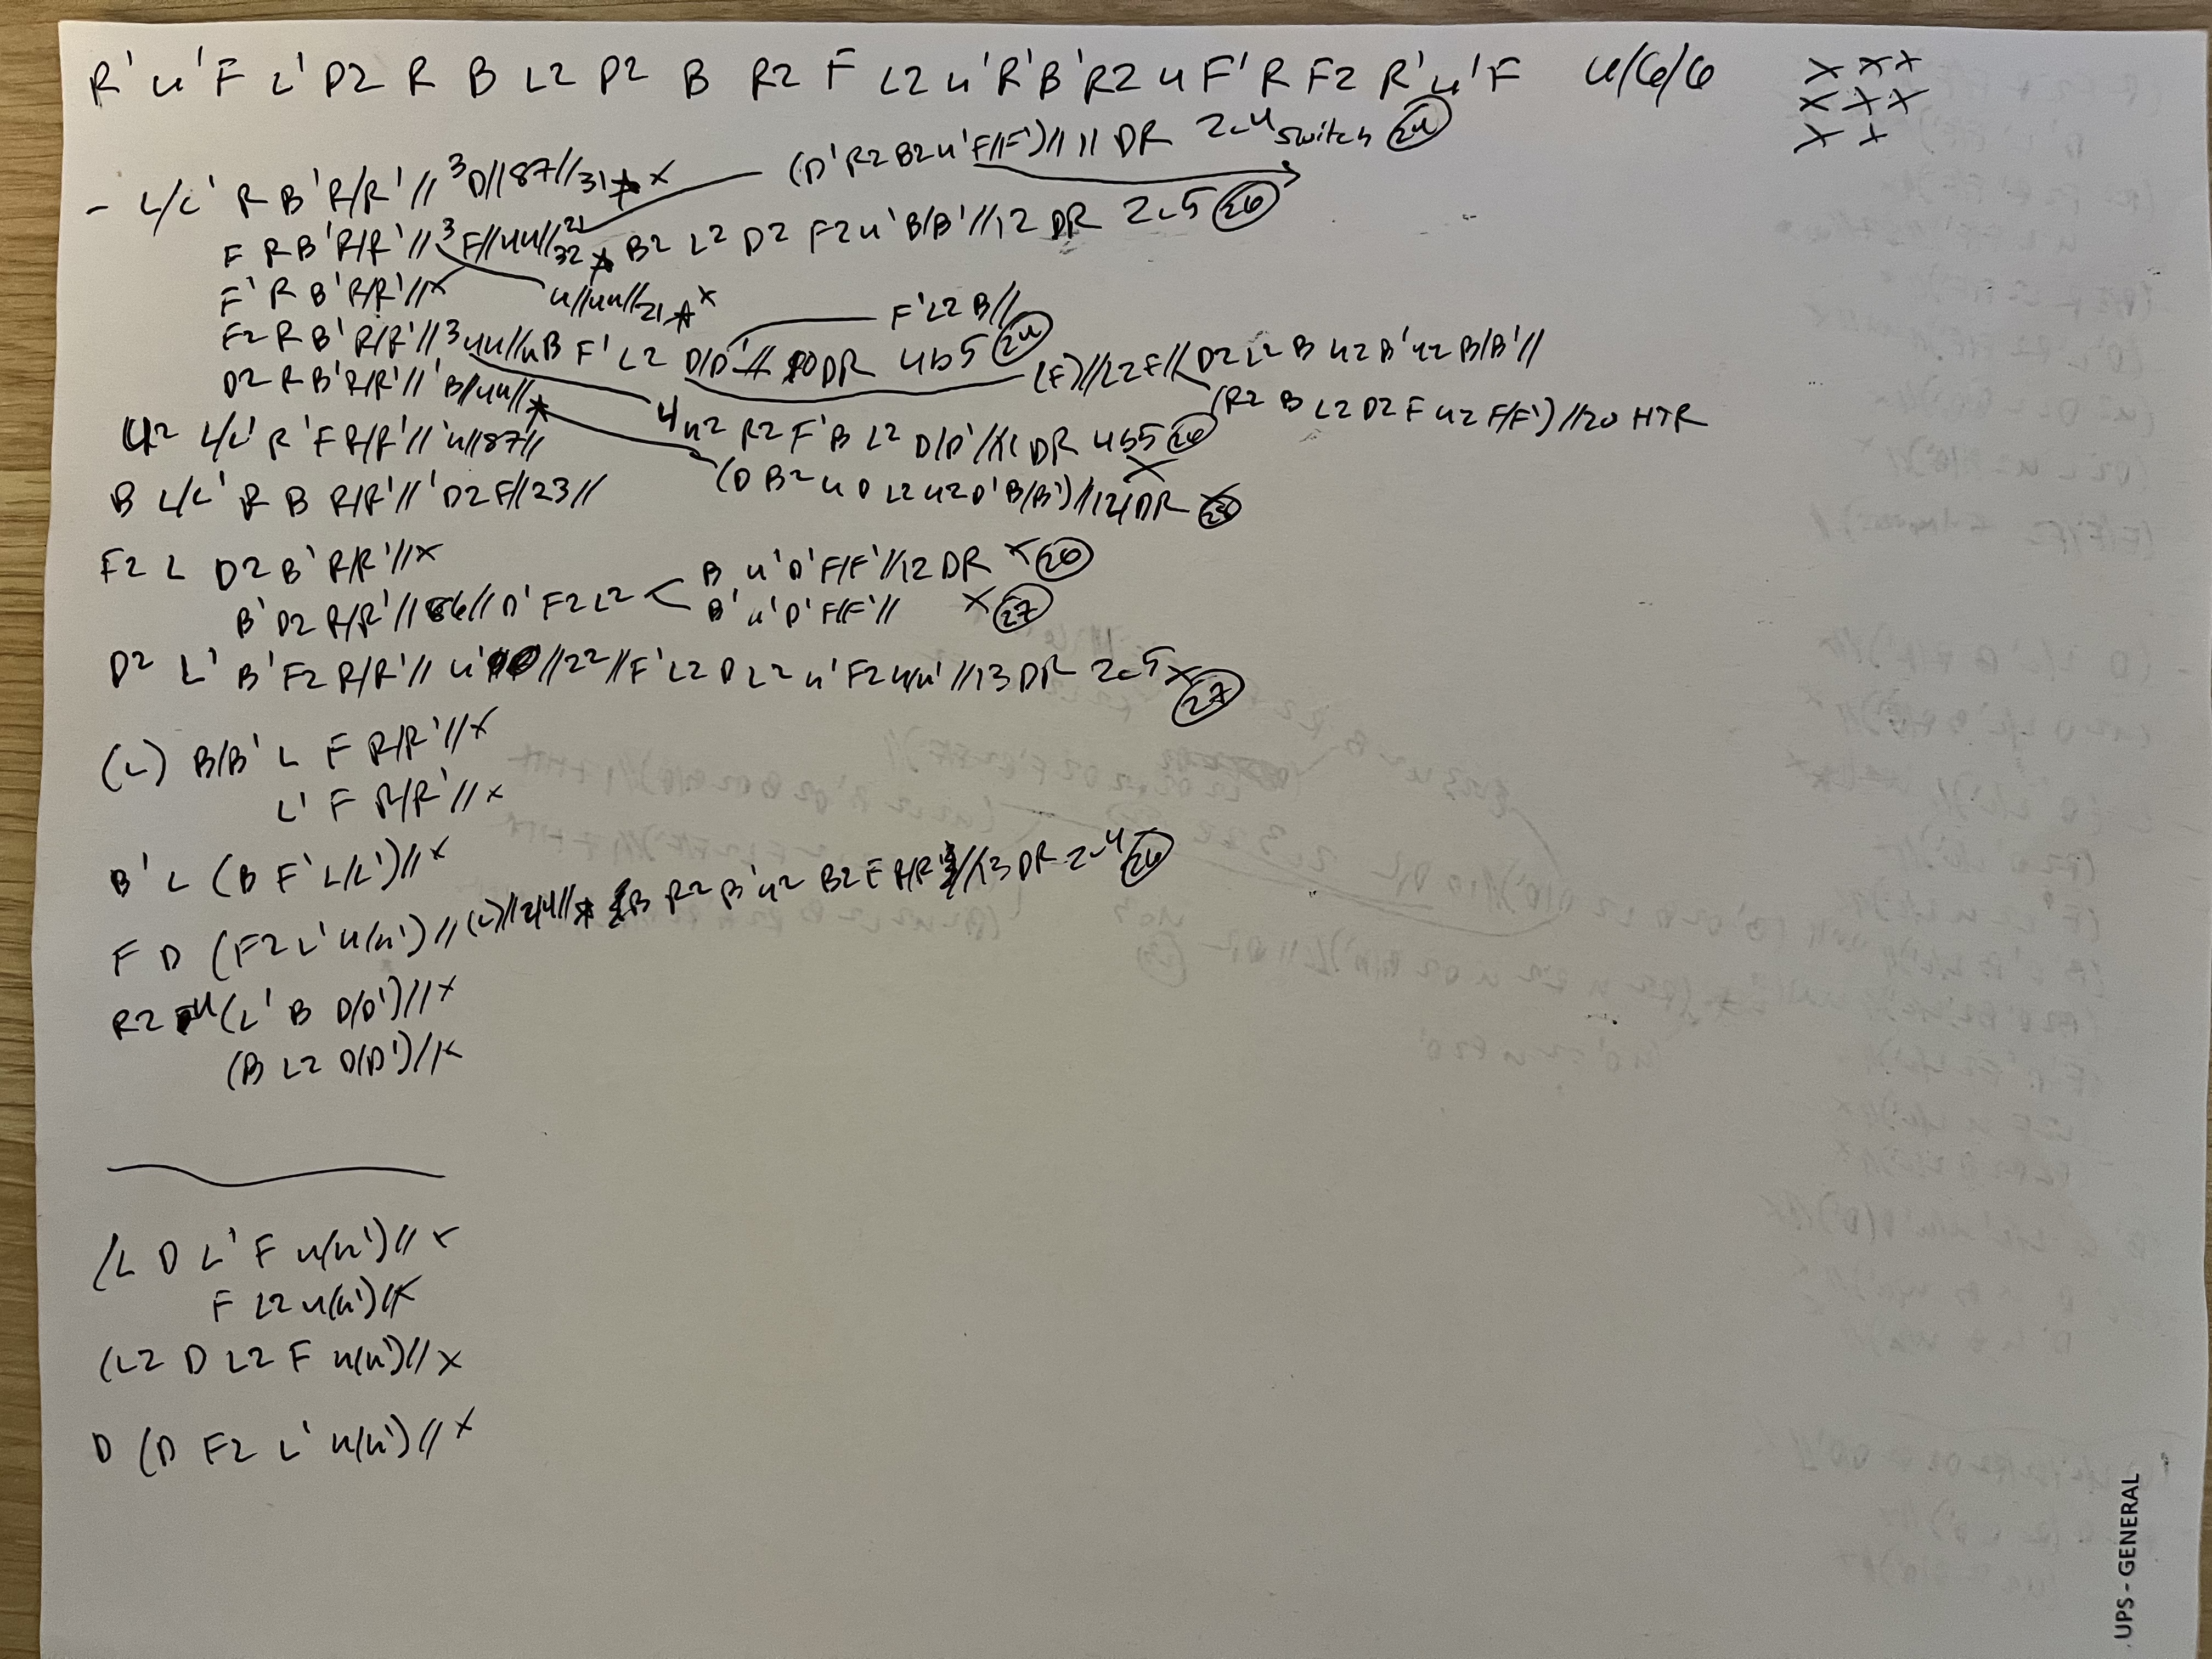 R' u' F L' D2 R B L2 D2 B R2 F L2 u' R' B' R2 u F' R F2 R' u' F 4/6/6
x x x
x x x
x x
(D' R2 B2 u' F/F') // 11 DR 2c4 switch 24
- L/L' R B' R/R' // 3 D // 87 // 31 x
F R B' R/R' // 3 F // 44 // 21 32 B2 L2 D2 F2 u' B/B' // 12 DR 2c5 26
F' R B' R/R' // x
u // 44 // 21 x
F' L2 B //
F2 R B' R/R' // 3 44 // u B F' L2 D/D' // 10 DR 4b5 24
(F) // L2 F // D2 L2 B u2 B' u2 B/B' //
(R2 B L2 D2 F u2 F/F') // 20 HTR
D2 R B' R/R' // ' B // 44 //
4 u2 R2 F' B L2 D/D' // 11 DR 4b5 26
U2 L/L' R' F R/R' // ' u // 87 //
(D B2 u D L2 u2 D' B/B') // 14 DR x
B L/L' R B R/R' // ' D2 F // 23 //
F2 L D2 B' R/R' // x
B' D2 R/R' // 86 // D' F2 L2 < B u' D' F/F' // 12 DR x 26
B' u' D' F/F' // x 27
D2 L' B' F2 R/R' // u' // 22 // F' L2 D L2 u' F2 u/u' // 13 DR 2c5 x 27
(L) B/B' L F R/R' // x
L' F R/R' // x
B' L (B F' L/L') // x
F D (F2 L' u/u') // (L) // 24 // B R2 B' u2 B2 F R/R' // 13 DR 2c4 26
R2 u (L' B D/D') // x
(B L2 D/D') // x
(L D L' F u/u') // x
F L2 u/u') // x
(L2 D L2 F u/u') // x
D (D F2 L' u/u') // x
UPS - GENERAL